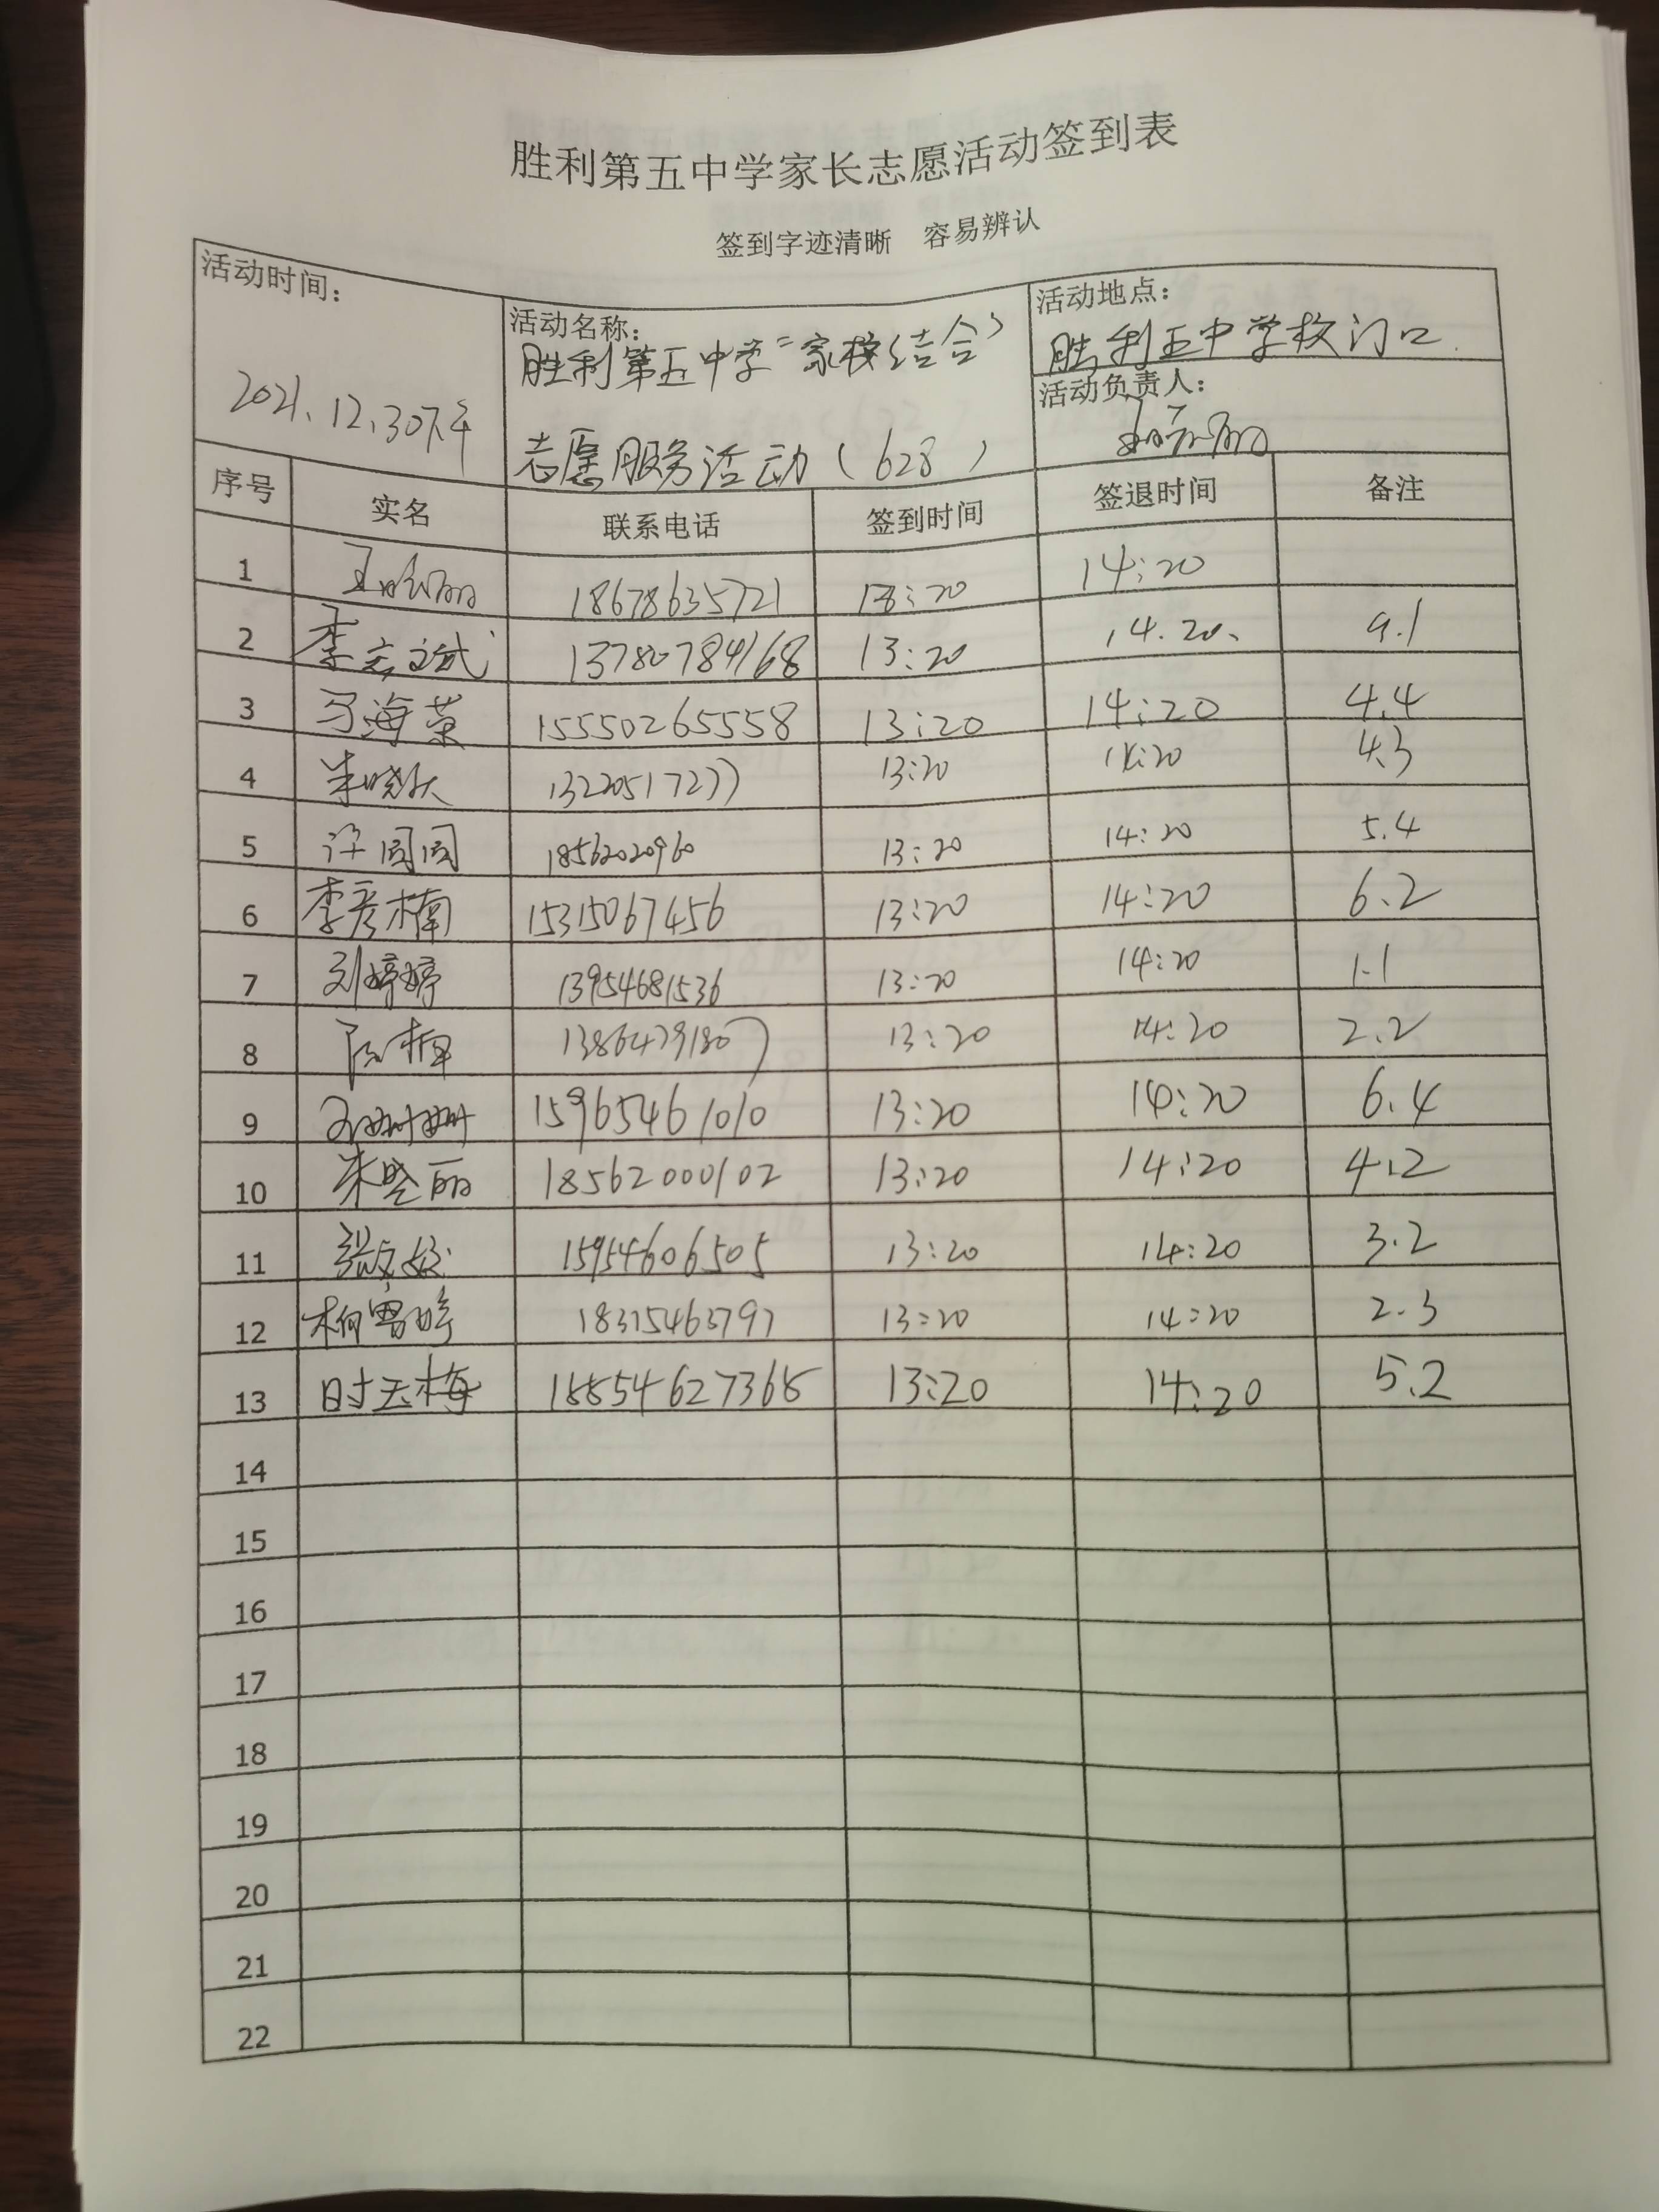 胜利第五中学家长志愿活动签到表
签到字迹清晰 容易辨认
活动时间： 2021.12.30下午
活动名称： 胜利第五中学“家校结合”
志愿服务活动（628）
活动地点： 胜利五中学校门口
活动负责人：
序号 实名 联系电话 签到时间 签退时间 备注
1 18678635721 13:20 14:20
2 李 13780784168 13:20 14.20. 9.1
3 马海荣 15550265558 13:20 14:20 4.4
4 朱晓 13220517277 13:20 14:20 4.3
5 许园园 18562020960 13:20 14:20 5.4
6 李彦楠 15315067456 13:20 14:20 6.2
7 刘婷婷 13954681536 13:20 14:20 1.1
8 13:20 14:20 2.2
9 15965461010 13:20 14:20 6.4
10 朱丽 18562000102 13:20 14:20 4.2
11 张文姣 15954606505 13:20 14:20 3.2
12 柳雪婷 18315463797 13:20 14:20 2.3
13 时玉梅 18854627368 13:20 14:20 5.2
14
15
16
17
18
19
20
21
22